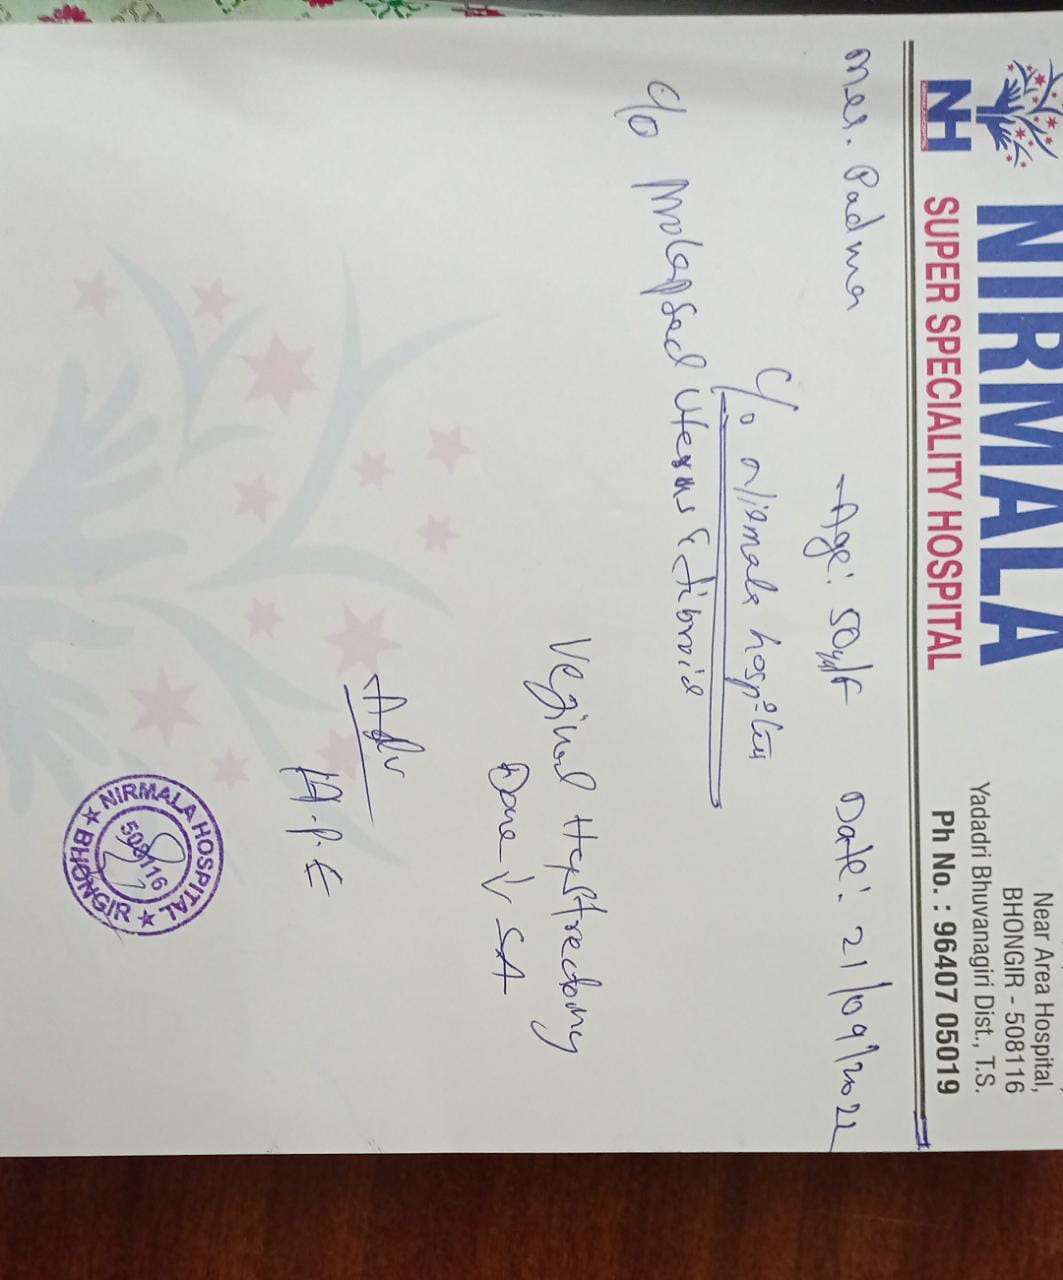 NH
NIRMALA
SUPER SPECIALITY HOSPITAL
Near Area Hospital,
BHONGIR - 508116
Yadadri Bhuvanagiri Dist., T.S.
Ph No. : 96407 05019
Mrs. Padma - Age: 50y/F Date: 21/09/2022
C/o Nirmala hospital
c/o Prolapsed Uterus & fibroid
Veginal Hepstrectomy
Done ↓ SA
Adv
H.P.E
NIRMALA HOSPITAL
508116
★ BHONGIR ★